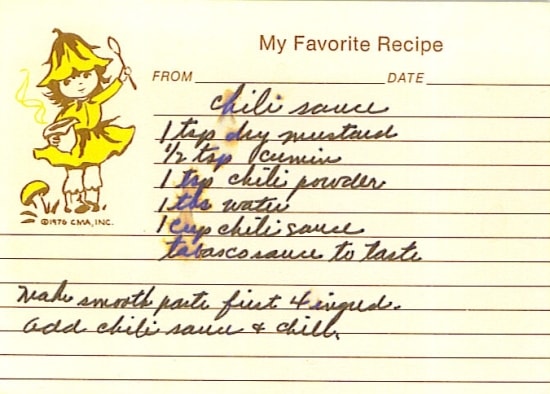 My Favorite Recipe
FROM DATE
chili sauce
1 tsp dry mustard
1/2 tsp cumin
1 tsp chili powder
1 tbs water
1 cup chili sauce
tabasco sauce to taste
©1976 CMA, INC.
Make smooth paste first 4 ingred.
add chili sauce & chill.